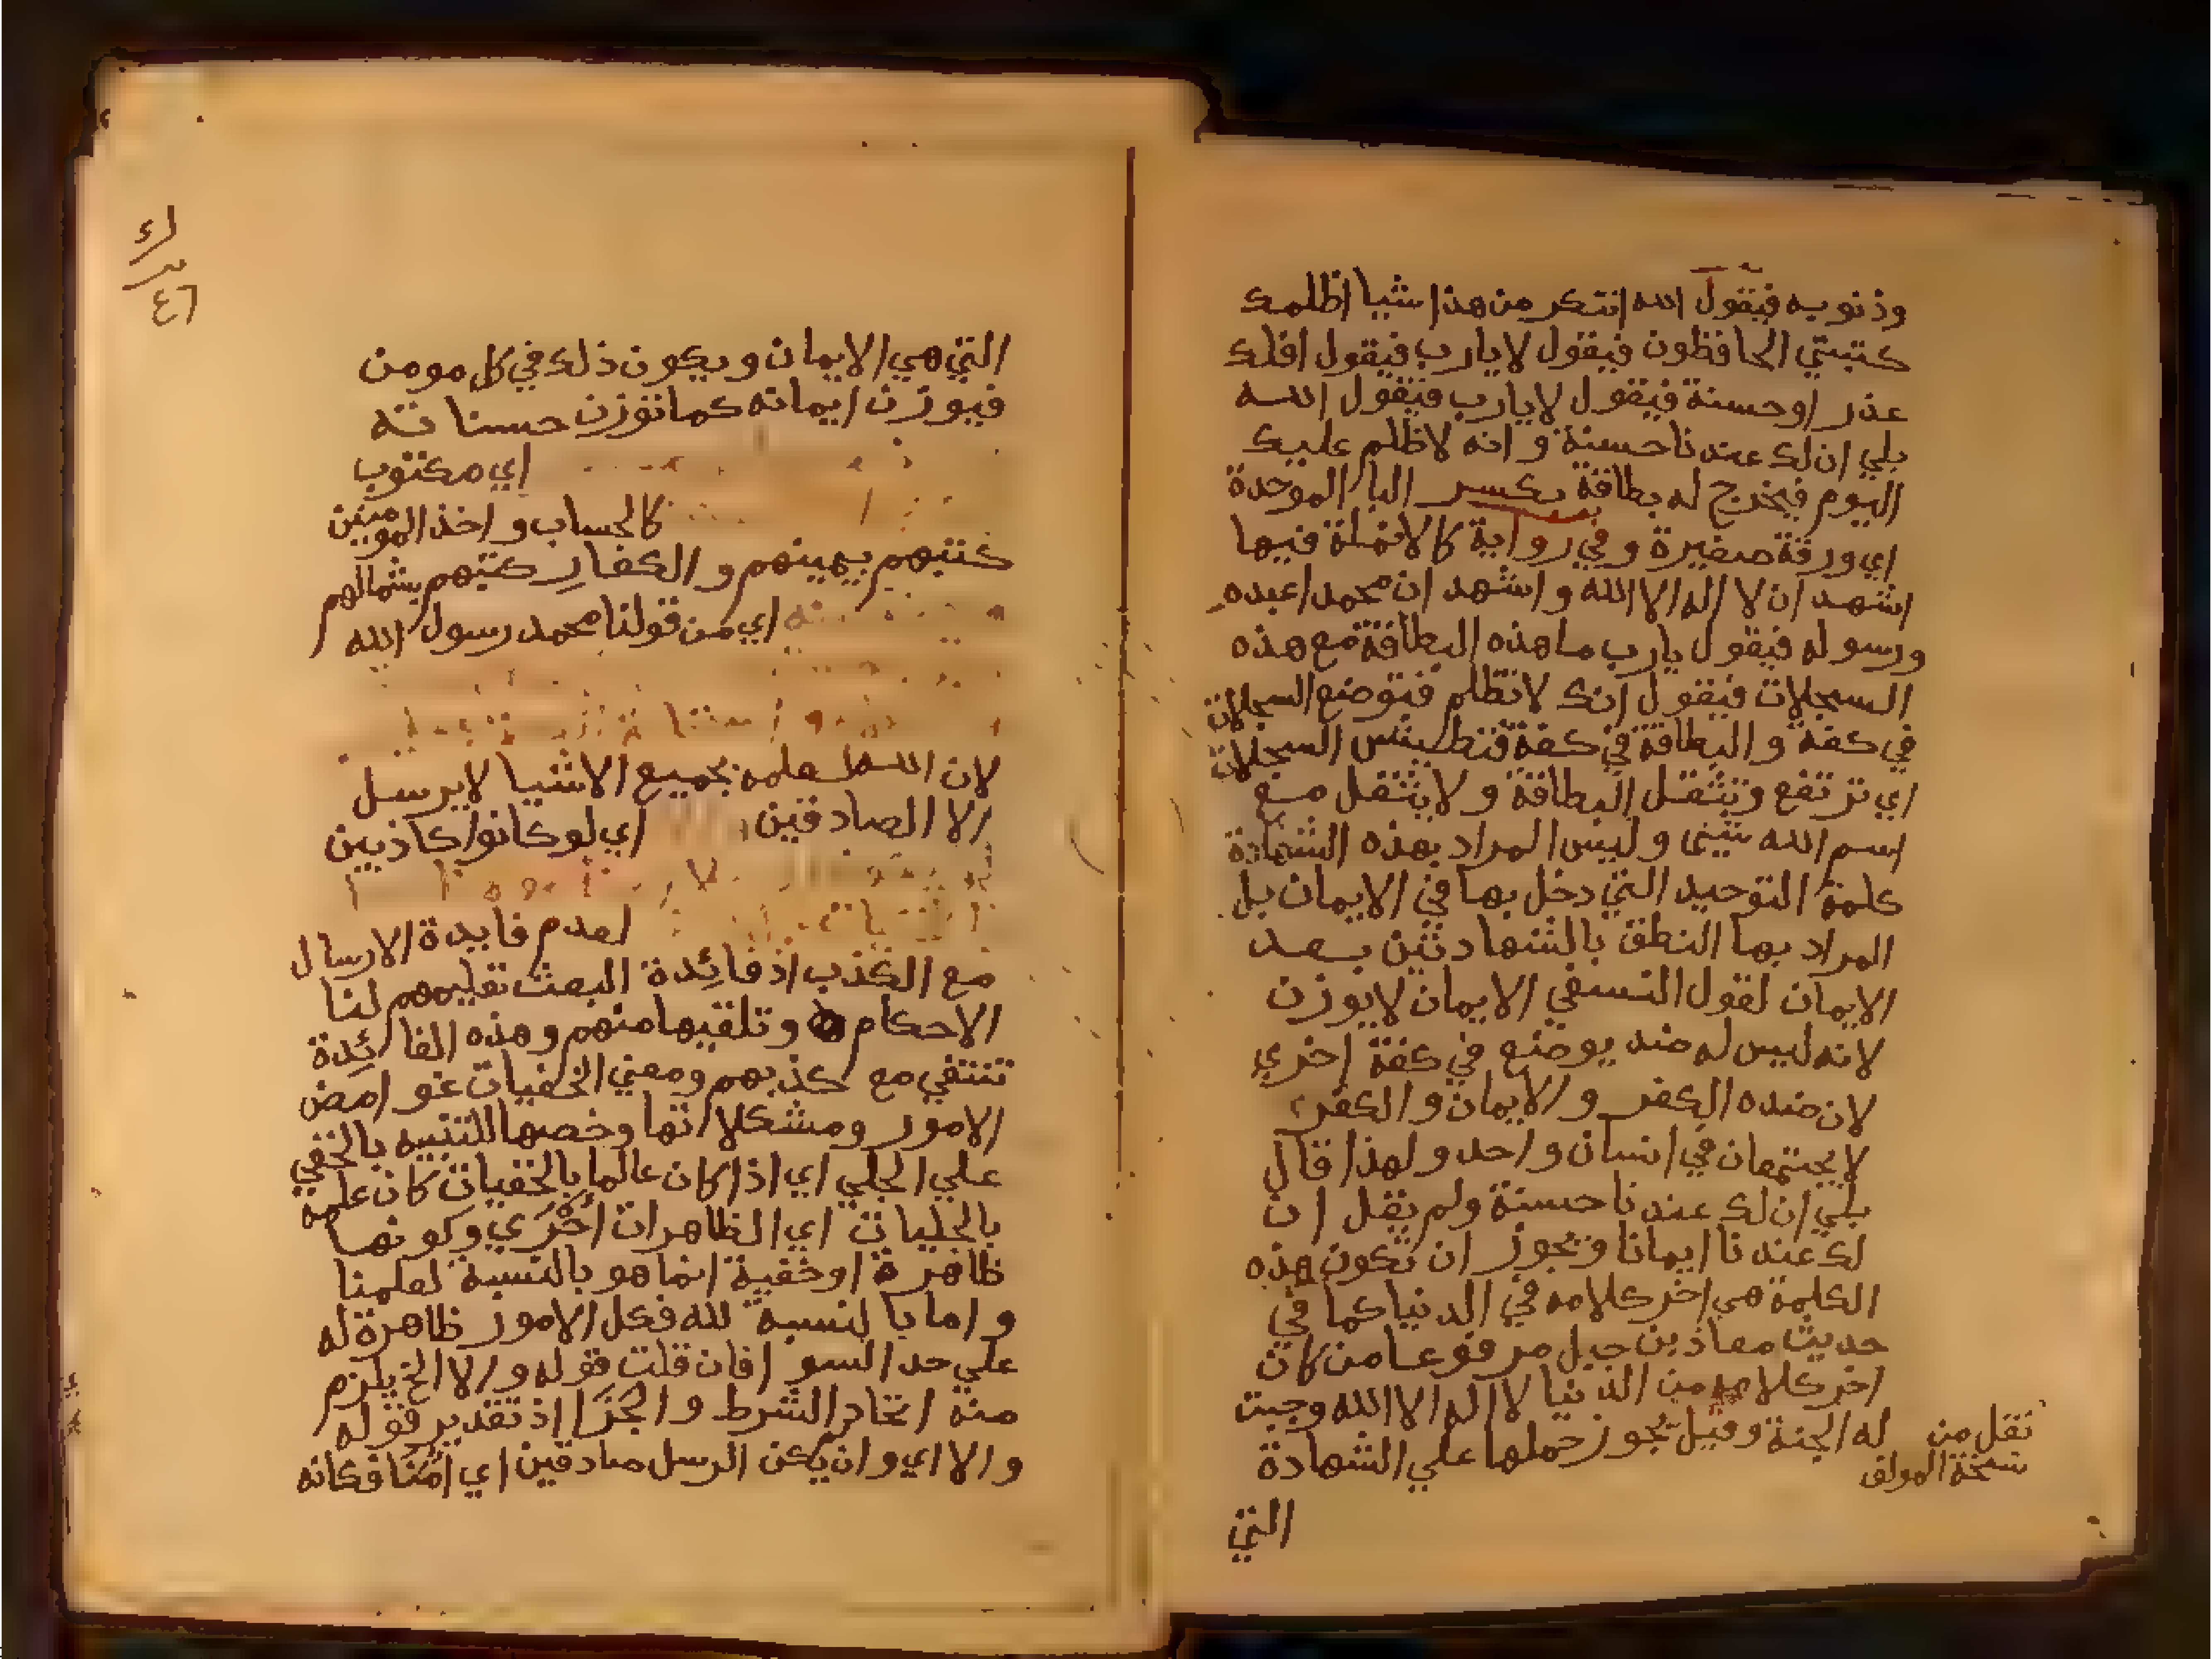 وذنوبه فيقول الله اتنكر من هذا شيا اظلمك
كتبتي الحافظون فيقول لا يارب فيقول افلك
عذر او حسنة فيقول لا يارب فيقول الله
بلي ان لك عندنا حسنة وانه لا ظلم عليك
اليوم فيخرج له بطاقة بكسر البا الموحدة
اي ورقة صغيرة وفي رواية كالانملة فيها
اشهد ان لا اله الا الله واشهد ان محمدا عبده
ورسوله فيقول يارب ما هذه البطاقة مع هذه
السجلات فيقول انك لا تظلم فتوضع السجلات
في كفة والبطاقة في كفة فتطيش السجلات
اي ترتفع وتثقل البطاقة ولا يثقل مع
اسم الله شيى وليس المراد بهذه الشهادة
كلمة التوحيد التي دخل بها في الايمان بل
المراد بها النطق بالشهادتين بعد
الايمان لقول النسفي الايمان لا يوزن
لانه ليس له ضد يوضع في كفة اخري
لان ضده الكفر والايمان والكفر
لا يجتمعان في انسان واحد ولهذا قال
بلي ان لك عندنا حسنة ولم يقل ان
لك عندنا ايمانا ويجوز ان تكون هذه
الكلمة هي اخر كلامه في الدنيا كما في
حديث معاذ بن جبل مرفوعا من كان
اخر كلامه من الدنيا لا اله الا الله وجبت
له الجنة وقيل يجوز حملها علي الشهادة
نقل من
نسخة المولف
التي
٤٦
التي هي الايمان ويكون ذلك في كل مومن
فيوزن ايمانه كما توزن حسناته
اي مكتوب
كالحساب واخذ المومنين
كتبهم بيمينهم والكفار كتبهم بشمالهم
اي من قولنا محمد رسول الله
لان الله لعلمه بجميع الاشيا لا يرسل
الا الصادقين اي لو كانوا كاذبين
لعدم فايدة الارسال
مع الكذب اذ فائدة البعث تعليمهم لنا
الاحكام وتلقيها منهم وهذه الفائدة
تنتفي مع كذبهم ومعني الخفيات غوامض
الامور ومشكلاتها وخصها للتنبيه بالخفي
علي الجلي اي اذا كان عالما بالخفيات كان علمه
بالجليات اي الظاهرات أَحْرَي وكونها
ظاهرة او خفية انما هو بالنسبة لعلمنا
واما بالنسبة لله فكل الامور ظاهرة له
علي حد السوا فان قلت قوله والا الخ يلزم
منه اتحاد الشرط والجزا اذ تقدير قوله
والا اي وان يكن الرسل صادقين اي امنا فكانه